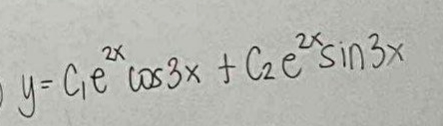 ) y = C₁e²ˣ cos3x + C₂e²ˣ sin3x